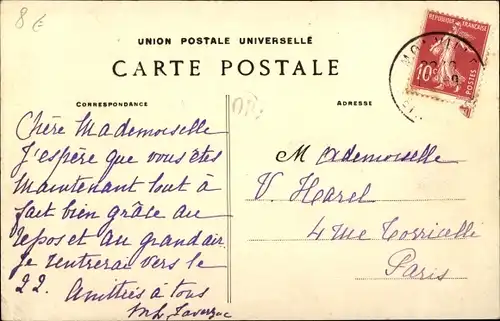 8 €
UNION POSTALE UNIVERSELLE
CARTE POSTALE
CORRESPONDANCE
ADRESSE
REPUBLIQUE FRANÇAISE
10c
POSTES
Chère Mademoiselle
J'espère que vous êtes
maintenant tout à
fait bien grâce au
repos et au grand air.
Je rentrerai vers le
22. Amitiés à tous
Mademoiselle
V. Harel
4 rue Torricelli
Paris